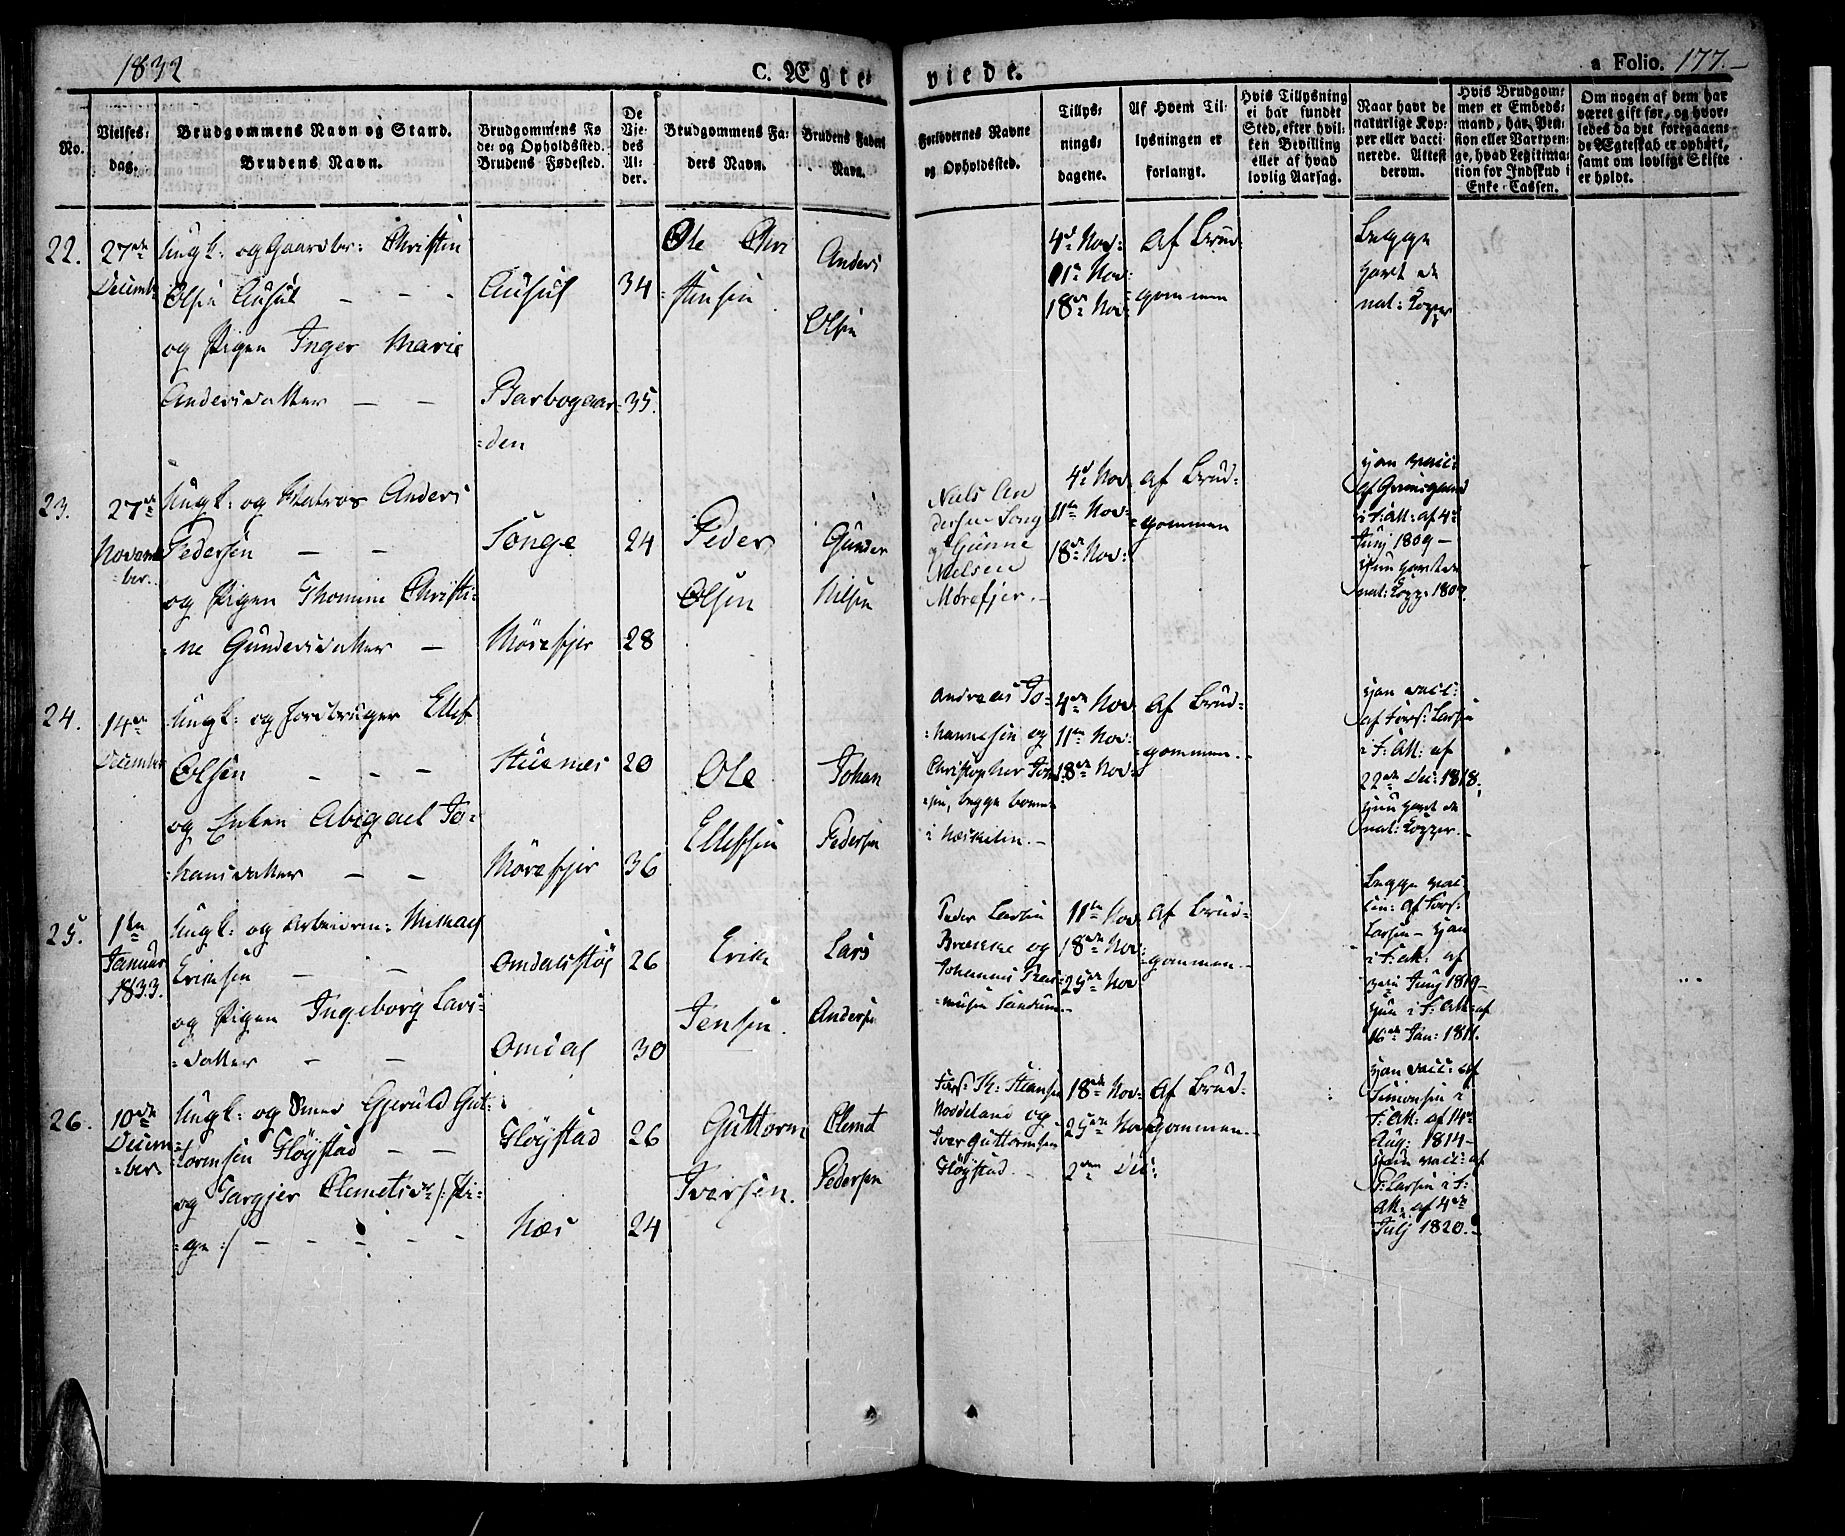 1832
C. Ægte-
viede.
a Folio. 177.
No.
Vielses-
dag.
Brudgommens Navn og Stand.
Brudens Navn.
Brudgommens Fø
de- og Opholdssted.
Brudens Fødested.
De
Vie-
des
Al-
der.
Brudgommens Fa-
ders Navn.
Brudens Faders
Navn.
Forlovernes Navne
og Opholdssted.
Tillys-
nings-
dagene.
Af Hvem Til-
lysningen er
forlangt.
Hvis Tillysning
ei har fundet
Sted, efter hvil-
ken Bevilling
eller af hvad
lovlig Aarsag.
Naar havt de
naturlige Kop-
per eller vacci-
nerede. Attest
derom.
Hvis Brudgom-
men er Embeds-
mand, har Pen-
sion eller Vartpen-
ge, hvad Legitima-
tion for Indskud i
Enke-Cassen.
Om nogen af dem har
været gift før, og hvor-
ledes da det foregaaen-
de Ægteskab er ophørt,
samt om lovligt Skifte
er holdt.
22.
27de
Decembr
Ungk: og Gaardbr: Christen
Olsen Ausul - - -
og Pigen Inger Marie
Andersdatter - -
Ausul
Barbogaar-
=den
34
35.
Ole Chri
stensen
Anders
Olsen
4de Nov:
11te Nov:
18de Nov:
af Brud
=gommen
Begge
havt de
nat: Kopper
23.
27de
Novem
=ber.
Ungk: og Matros Anders
Pedersen - -
og Pigen Thomine Christi-
=ne Gundersdatter -
Songe
Mørefjer
24
28
Peder
Olsen
Gunder
Nilsen
Niels An
dersen Song
og Gunne
Nielsen
Mørefjer.-
4de Nov
11te Nov:
18de Nov:
af Brud-
=gommen
Han vacc:
af
i F: Att: af 4de
Junj 1809 -
Hun havt de
nat: Kopp: 1807.
24.
14de
Decembr
Ungk: og Jordbruger Ellef
Olsen - - -
og Enken Abigael Jo-
=hansdatter - -
Stuenæs
Mørefjer
20
36
Ole
Ellefsen
Johan
Pedersen
Andreas Jo-
=hannesen og
Christopher
=sen, begge boende
i Næskilen.-
4de Nov
11te Nov:
18de Nov:
af Brud-
=gommen.-
Han vacc:
af Førs: Larsen
i F: Att: af
22de Dec: 1818.
Hun havt de
nat: Kopper.-
25.
1ste
Januar
1833.
Ungk: og Arbeidsm:
Eriksen - -
og Pigen Ingeborg Lars-
=datter - -
Omdalsstøl
Omdal
26
30
Erik
Jensen.
Lars
Andersen
Peder Larsen
Brække og
Johannes
Sandum.-
11te Nov
18de Nov:
25de Nov
af Brud-
=gommen.-
Begge vac
cin: af Førs:
Larsen - Han
i F: Att: af
Junj 1819 -
Hun i F: Att: af
16de Jan: 1811.
26.
10de
Decem
=ber
Ungk: og Gjeruld Gut-
=tormsen Fløystad - -
og Targjer Clemetsdr /: Pi-
=ge :/ - - - - -
Fløystad
Næs
26
24
Guttorm
Iversen.
Clemet
Pedersen
Nordeland og
Iver Guttormsen
Fløystad.-
18de Nov:
25de Nov:
2den Dec:
af Brud-
=gommen.-
Han vacc: af
Simonsen i
F: Att: af 14de
Aug: 1814 -
Hun vacc: af
F: Larsen i F:
Att: af 4de
Julj 1820.-